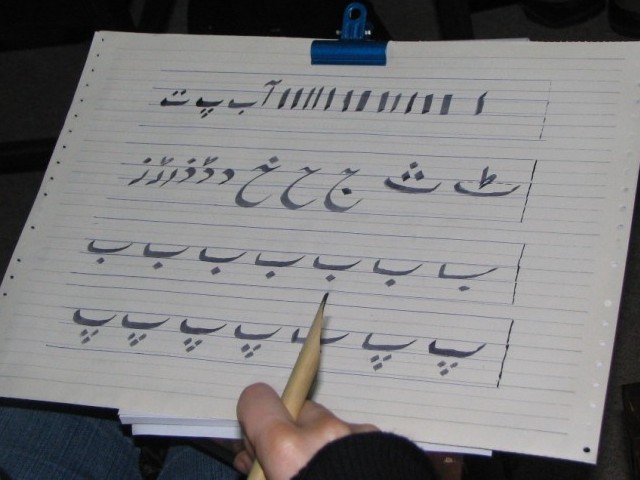 ا ا ا ا ا ا ا ا ا ا ا ا ا آ ب پ ت
ٹ ث ج ح خ د ڈ ذ ر ڑ ز
ب ب ب ب ب ب ب
پ پ پ پ پ پ